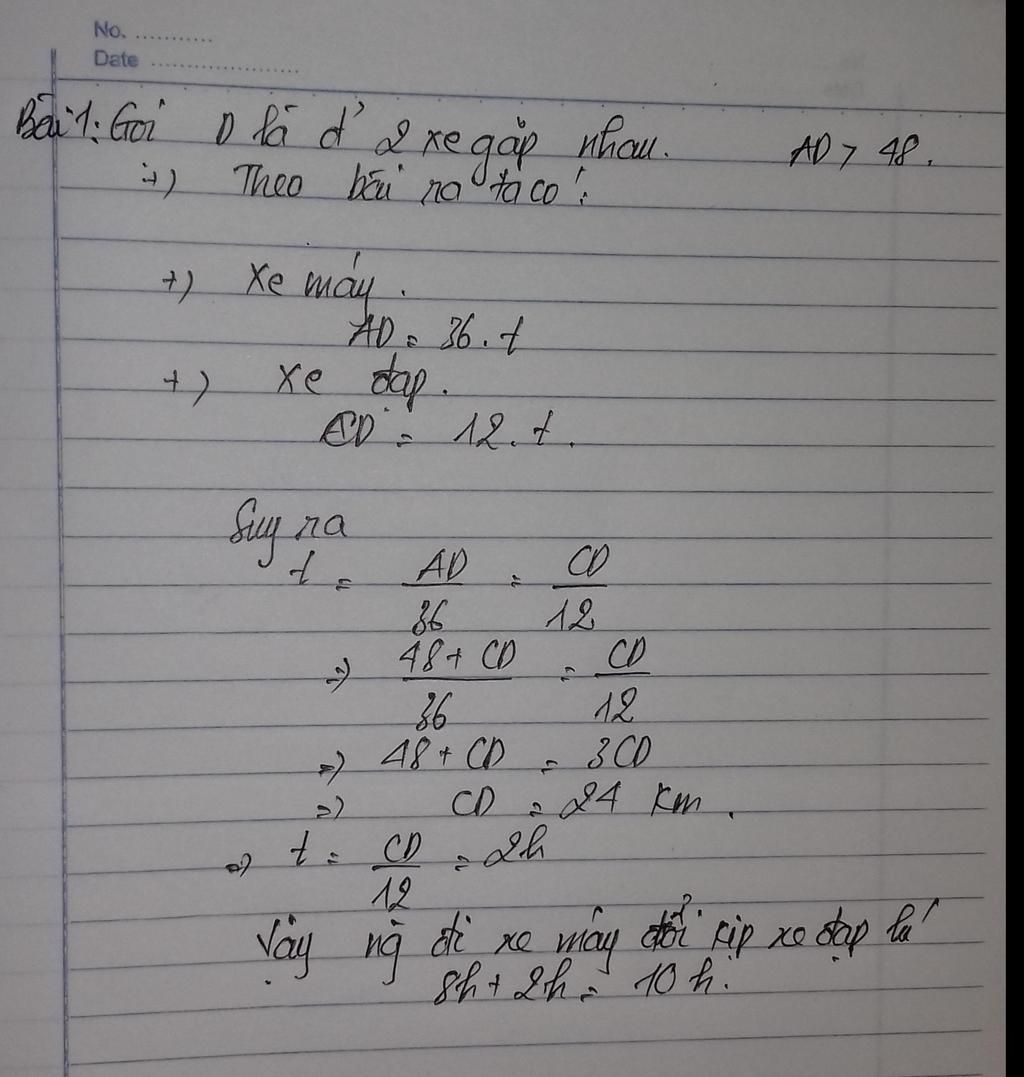 No. ...........
Date ......................
Bài 1: Gọi D là đ' 2 xe gặp nhau. AD > 48.
=) Theo bài ra ta có:
+) Xe máy.
AD = 36. t
+) Xe đạp.
CD = 12. t.
Suy ra
t = AD/36 = CD/12
=) 48 + CD/36 = CD/12
=) 48 + CD = 3CD
=) CD = 24 km.
=) t = CD/12 = 2h
Vậy ng đi xe máy đuổi kịp xe đạp lú
8h + 2h = 10h.